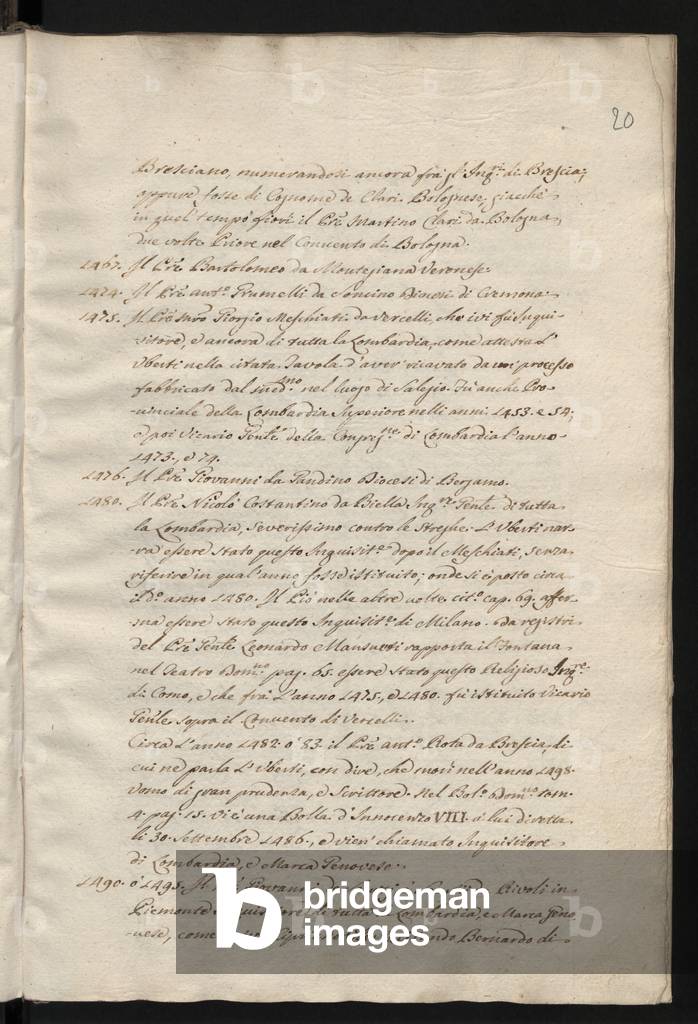 20
Bresciano, numerandosi ancora fra gl' Inq.ri di Brescia;
oppure fosse di Cognome de Clari Bolognese, giacchè
in quel tempo fiorì il P.re Martino Clari da Bologna
due volte Priore nel Convento di Bologna.
1467. Il P.re Bartolomeo da Montegiana Veronese.
1474. Il P.re Ant.o Prumelli da Soncino Diocesi di Cremona.
1475. Il P.re Mro Giorgio Meschiati da Vercelli, che ivi fù Inqui-
sitore, e ancora di tutta la Lombardia, come attesta L'
Uberti nella citata Tavola d'aver ricavato da un processo
fabbricato dal med.mo nel luogo di Salegio. Fù anche Pro-
-vinciale della Lombardia Superiore nelli anni 1453. e 54;
e poi Vicario Gen.le della Congreg.ne di Lombardia l'anno
1473., e 74.
1476. Il P.re Giovanni da Pandino Diocesi di Bergamo.
1480. Il P.re Nicolò Costantino da Biella Inq.re Gen.le di tutta
la Lombardia, severissimo contro le Streghe. L'Uberti nar-
ra essere stato questo Inquisit.re dopo il Meschiati, senza
riferire in qual'anno fosse istituito; onde si è posto circa
il d.o anno 1480. Il Piò nelle altre volte cit.o cap. 69. affer-
ma essere stato questo Inquisit.re di Milano. Da registri
del P.re Gen.le Leonardo Mansueti rapporta il Fontana
nel Teatro Dom.no pag. 65. essere stato questo Religioso Inq.re
di Como, e che frà L'anno 1475, e 1480. fù istituito Vicario
Gen.le sopra il Convento di Vercelli.
Circa L'anno 1482. ò 83. il P.re Ant.o Rota da Brescia, di
cui ne parla L'Uberti, con dire, che morì nell'anno 1498.
Uomo di gran prudenza, e Scrittore. Nel Bol.o Dom.no tom.
4. pag. 15. vi è una Bolla d'Innocenzo VIII. a lui diretta
li 30. Settembre 1486., e vien' chiamato Inquisitore
di Lombardia, e Marca Genovese.
1490. ò 1495. Il P.re Giovanni Rivoli in
Piemonte Inquisitore di tutta la Lombardia, e Marca Geno-
-vese, come Bernardo di
bridgeman
images